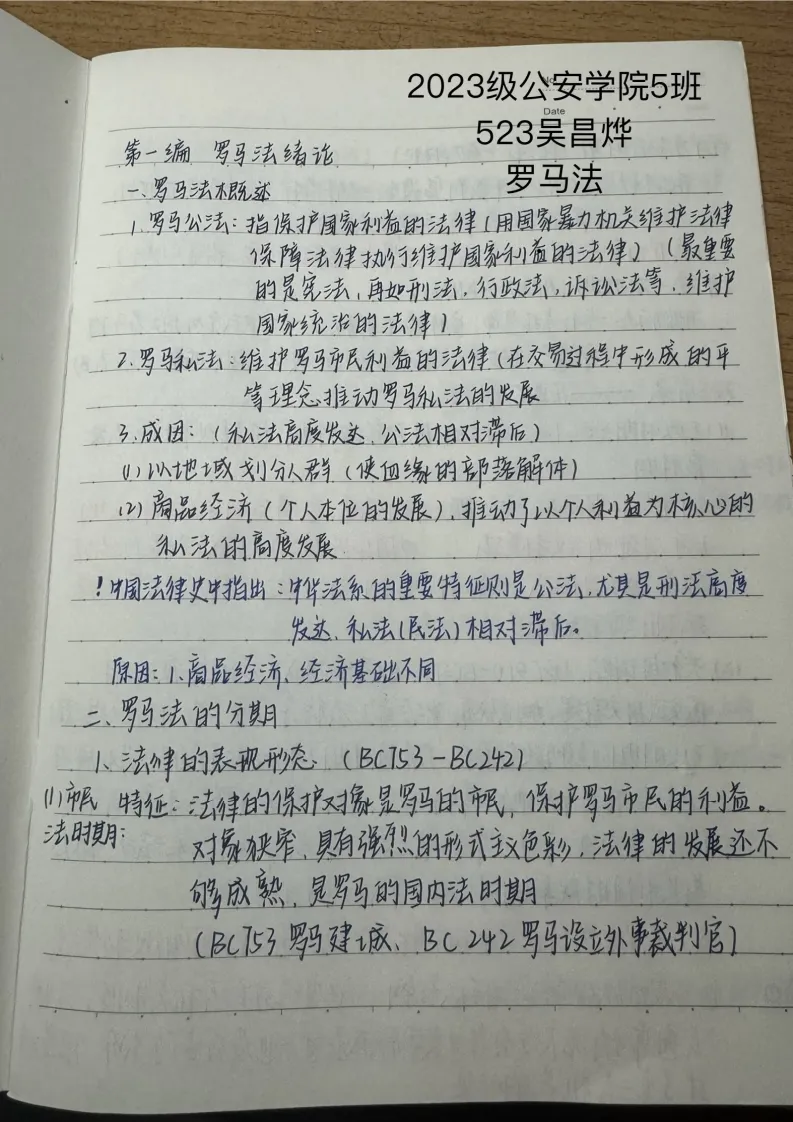 2023级公安学院5班
Date
523吴昌烨
罗马法
第一编 罗马法绪论
一、罗马法概述
1.罗马公法：指保护国家利益的法律(用国家暴力机关维护法律
保障法律执行维护国家利益的法律）（最重要
的是宪法,再如刑法,行政法,诉讼法等,维护
国家统治的法律）
2.罗马私法：维护罗马市民利益的法律(在交易过程中形成的平
等理念推动罗马私法的发展
3.成因：（私法高度发达,公法相对滞后）
(1)以地域划分人群（使血缘的部落解体）
(2)商品经济（个人本位的发展）,推动了以个人利益为核心的
私法的高度发展
！中国法律史中指出：中华法系的重要特征则是公法,尤其是刑法高度
发达,私法(民法)相对滞后。
原因：1、商品经济、经济基础不同
二、罗马法的分期
1、法律的表现形态：（BC753-BC242）
(1)市民 特征：法律的保护对象是罗马的市民，保护罗马市民的利益。
法时期：
对象狭窄,具有强烈的形式主义色彩,法律的发展还不
够成熟,是罗马的国内法时期
（BC753罗马建城、BC242罗马设立外事裁判官）